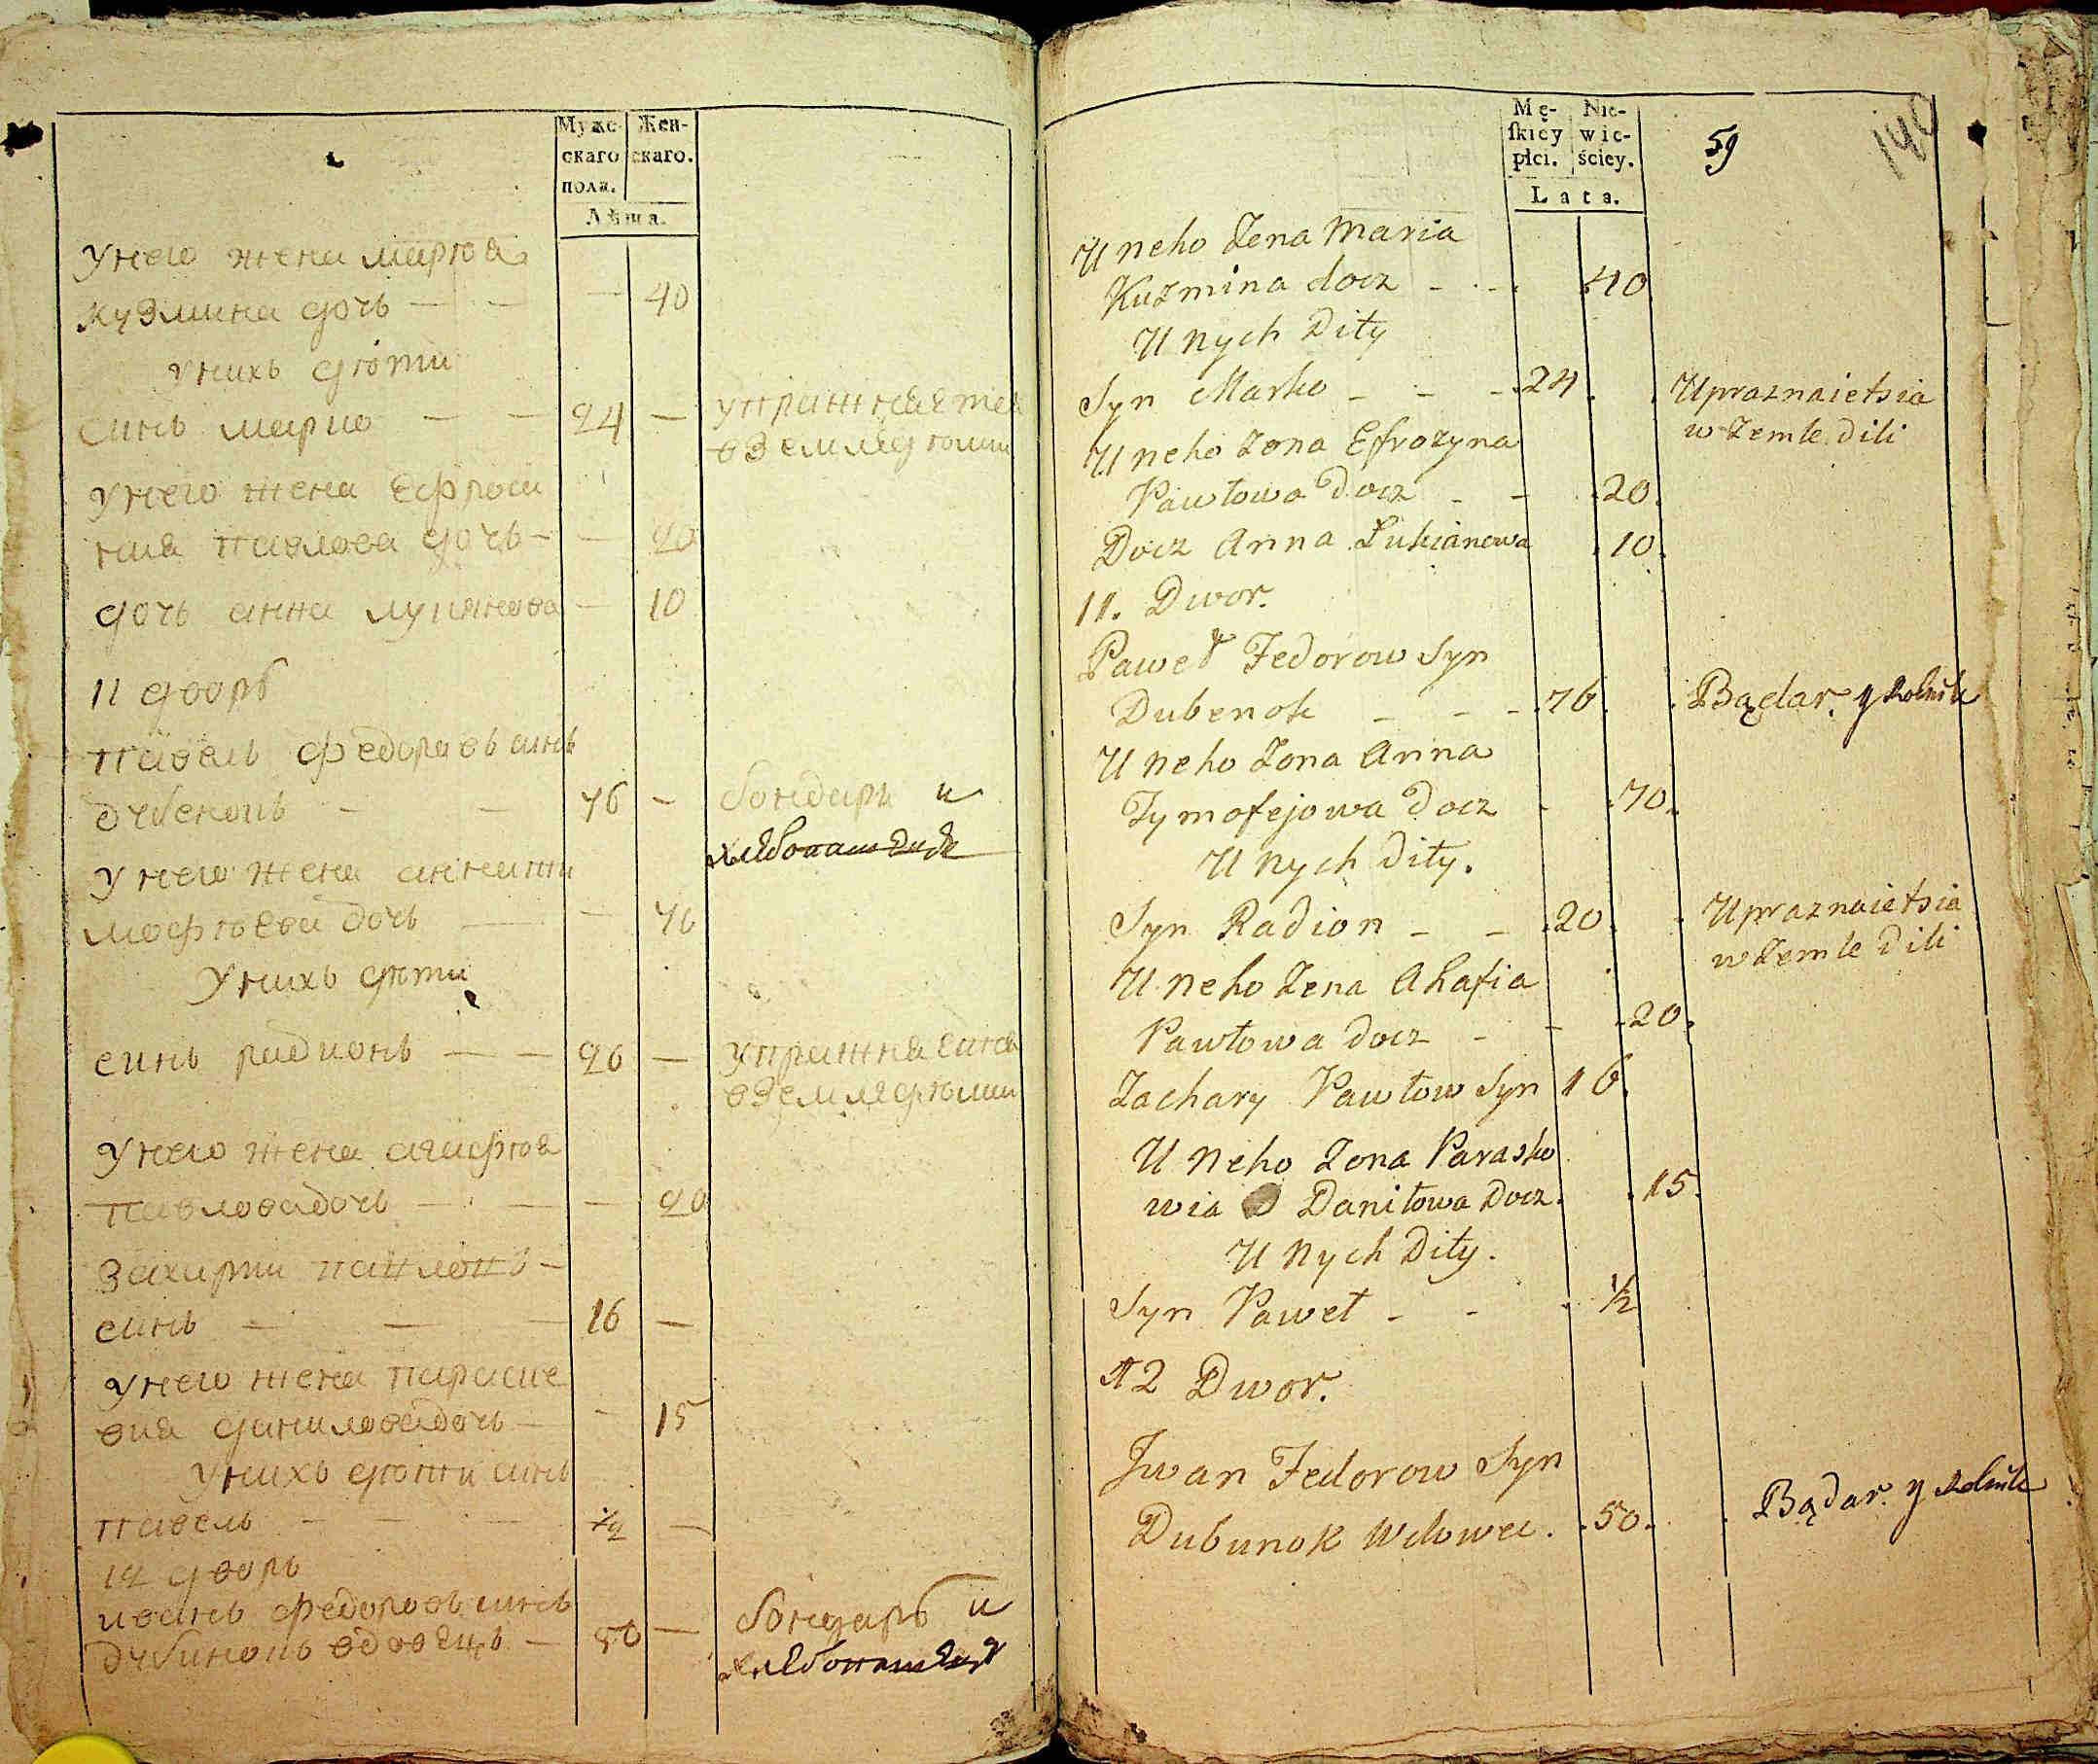 Муже-
скаго
пола.
Жен-
скаго.
Лѣта.
У него жена марѣя
кузмина дочь — — — 40
у нихъ дѣти
синъ марко — — 24 — упражняется
в землѣделии
У него жена Ефроси
ния павлова дочь — — 20
дочь анна лукянова — 10
11 дворъ
павелъ федоровъ синъ
дубенокъ — — 76 — бондарь и
хлебопашецъ
У него жена анна ти
мофѣева дочь — — 70
У нихъ дѣти
синъ радионъ — — 20 — упражняется
в землѣделии
У него жена агафѣя
павлова дочь — — — 20
Захарий павловъ —
синъ — — — 16 —
У него жена параске
вия данилова дочь — — 15
У нихъ дѣти синъ
павелъ — — — ½ —
12 дворъ
иванъ федоровъ синъ
дубинокъ вдовецъ — 50 — бондарь и
хлебопашецъ
Mę-
skiey
płci.
Nie-
wie-
ściey.
Lata.
59
140
U neho Żena Maria
Kuzmina docz - - - 40
U nych Dity
Syn Marko - - - 24 Upraznaietsia
w Zemle Dili
U neho Żona Efrozyna
Pawłowa Docz - - 20.
Docz Anna Lukianowa 10.
11. Dwor.
Paweł Fedorow Syn
Dubenok - - - 76. Bądar. y Rolnik
U neho Żona Anna
Tymofejowa Docz - 70.
U nych Dity.
Syn Radion - - 20. Upraznaietsia
w Zemle Dili
U neho Żena Ahafia
Pawłowa Docz - - 20.
Zachary Pawłow Syn 16.
U neho Żona Parasko
wia Daniłowa Docz. 15.
U nych Dity.
Syn Paweł - - ½
12 Dwor.
Iwan Fedorow Syn
Dubunok Wdowec. 50. Bądar. y Rolnik